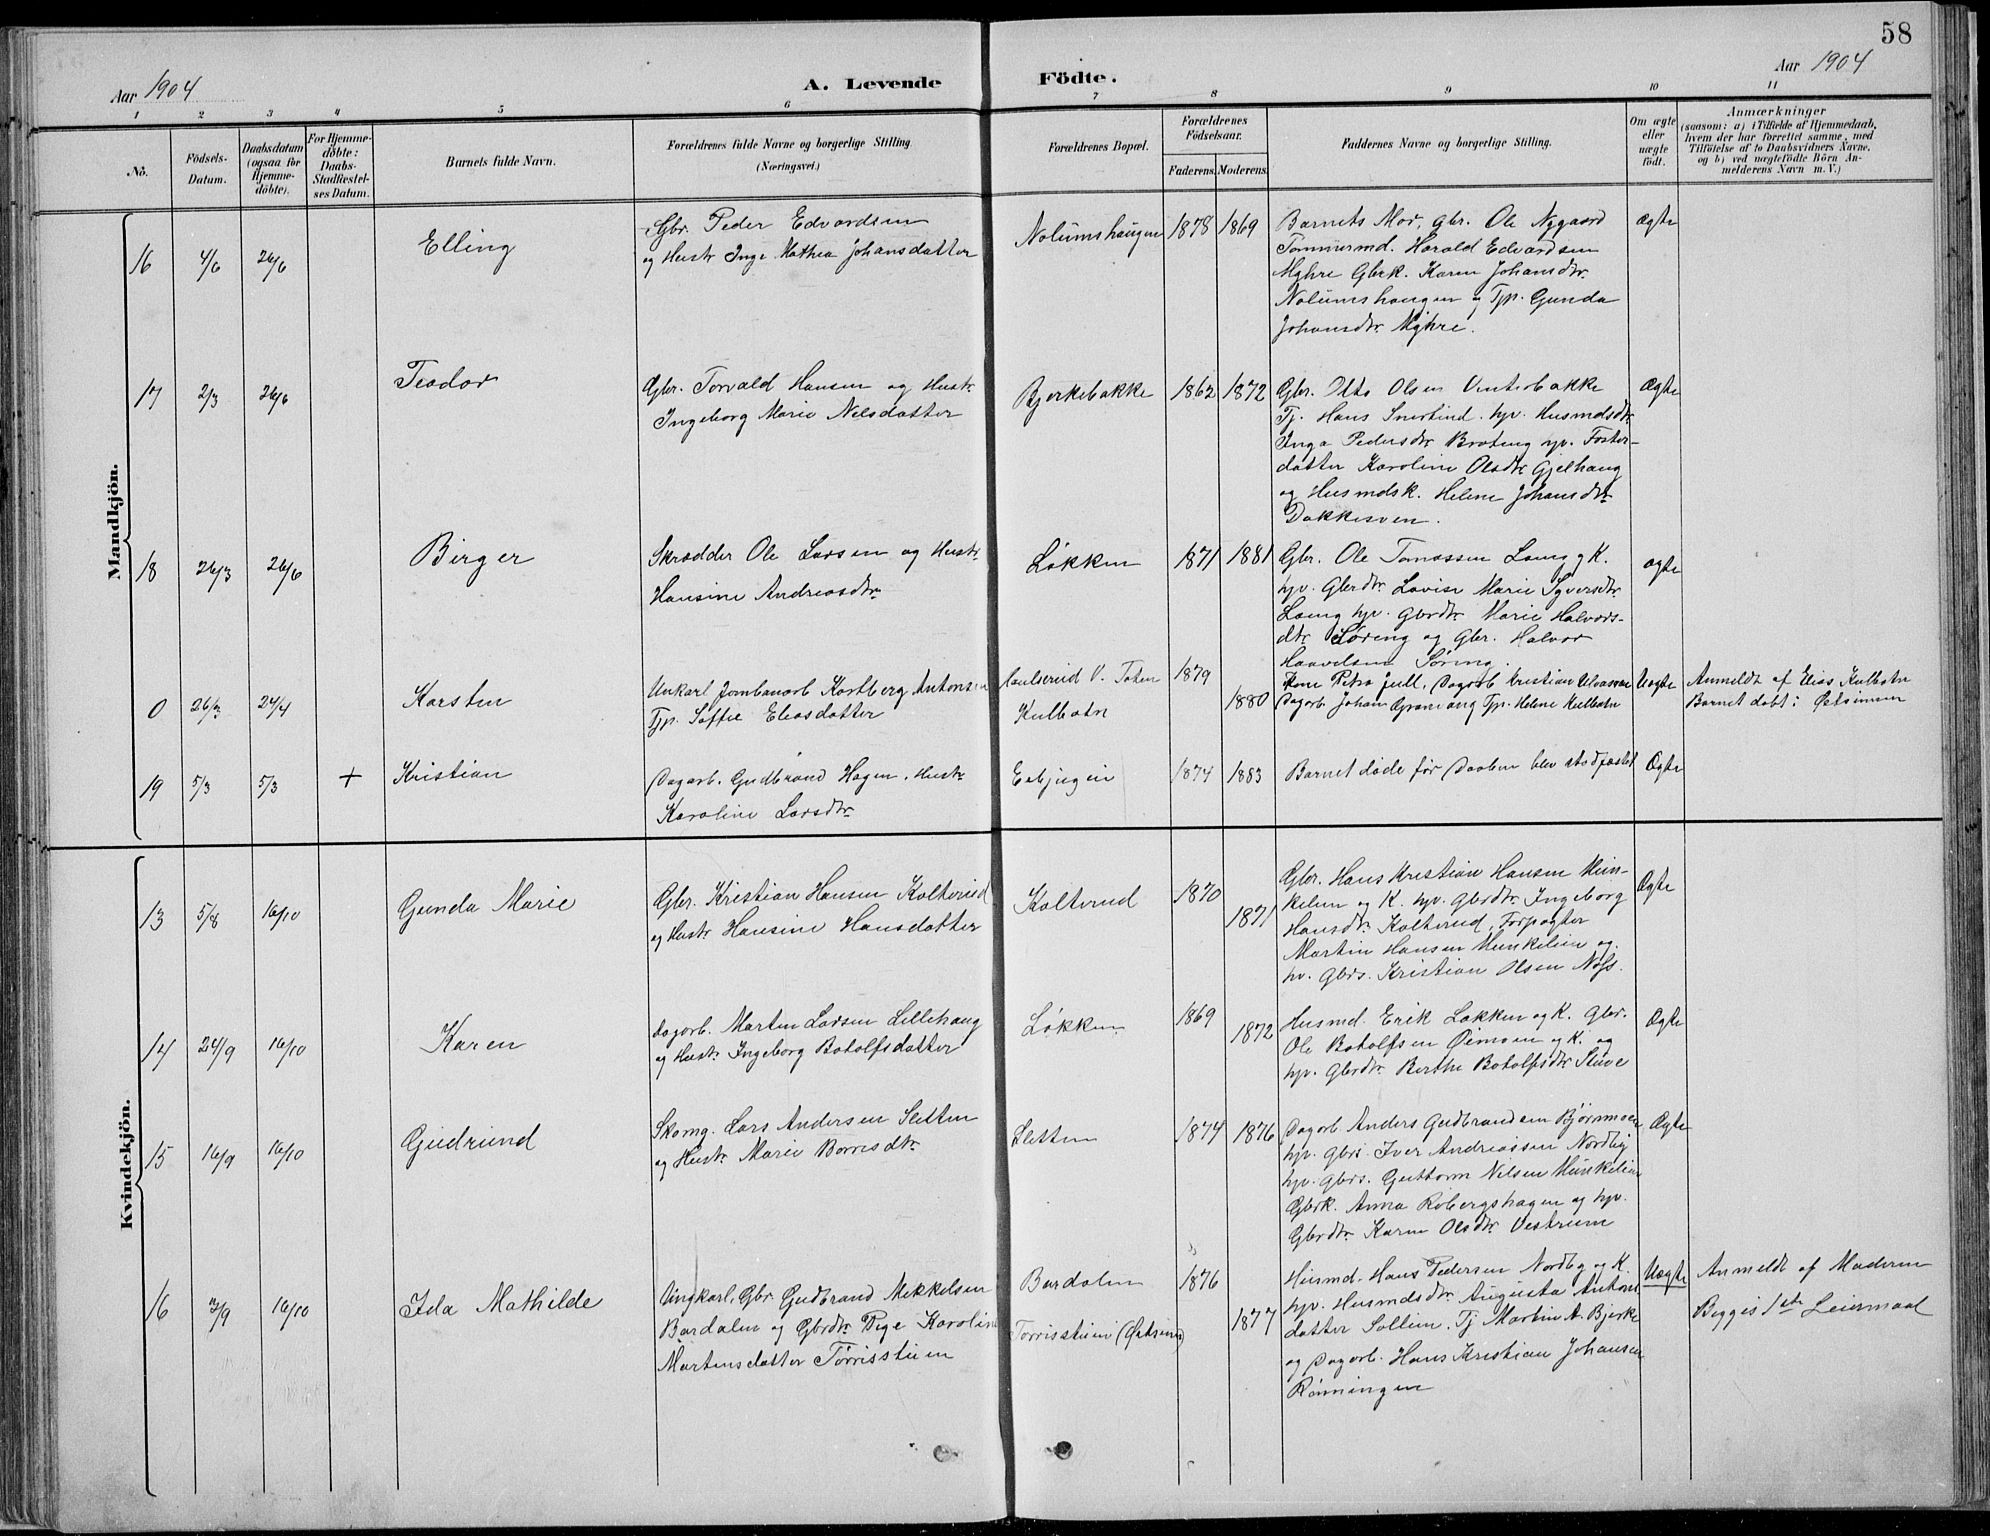 58
Aar 1904
A. Levende Födte.
Aar 1904
1 2 3 4 5 6 7 8 9 10 11
No.
Födsels-
Datum.
Daabsdatum
(ogsaa for
Hjemme-
döbte).
For Hjemme-
döbte:
Daabs-
Stadfæstel-
ses Datum.
Barnets fulde Navn.
Forældrenes fulde Navne og borgerlige Stilling
(Næringsvei.)
Forældrenes Bopæl.
Forældrenes
Födselsaar.
Faderens. Moderens.
Faddernes Navne og borgerlige Stilling.
Om ægte
eller
uægte
födt.
Anmærkninger
(saasom: a) i Tilfælde af Hjemmedaab,
hvem der har forrettet samme, med
Tilföielse af to Daabsvidners Navne,
og b) ved uægtefödte Börn An-
melderens Navn m. V.)
Mandkjön.
16 4/6 26/6
Elling
Gbr. Peder Edvardsen
og Hustr Inge Mathea Johansdatter
Nolumshaugen
1878 1869
Barnets Mor, Gbr. Ole Nygaard
Tømmermd. Harald Edvardsen
Myhre Gbrk. Karen Johansdtr.
Nolumshaugen og Tjp. Gunda
Johansdtr. Myhre.
Ægte
17 2/3 26/6
Teodor
Gbr. Torvald Hansen og Hustr.
Ingeborg Marie Nilsdatter
Bjerkebakke
1862 1872
Gbr. Otto Olsen Vinterbakke
Tj. Hans Snertind. hp. Husmdsdtr.
Inga Pedersdtr. Brateng hp. Foster-
datter Karoline Olsdtr. Gjelhaug
og Husmdsk. Helene Johansdtr.
Dakkesven.
Ægte
18 26/3 26/6
Birger
Skrædder Ole Larsen og Hustr.
Hansine Andreasdtr.
Løkken
1871 1881
Gbr. Ole Tomassen Laeng og K.
hp. Gbrdtr. Lovise Marie Syversdtr.
Laeng hp. Gbrdtr. Marie Halvors-
dtr. Søreng og Gbr. Halvor
Haavelsen Søreng.
ægte
0 26/3 24/4
Karsten
Unkarl Jernbanarb Kartberg Antonsen
Tjp. Soffie Eliasdatter
V. Toten
Kulbotn
1879
1880
Kone Petra Jull, Dagarb Kristian
Dagarb Johan og Tjp. Helene Kulbotn
Uægte
Anmeldt af Elias Kulbotn
Barnet døbt i Østsinnen
19 5/3 5/3 +
Kristian
Dagarb. Gudbrand Hagen, Hustr.
Karoline Larsdtr.
1874 1883
Barnet døde før Daaben blev stadfæstet
Ægte
Kvindekjön.
13 5/8 16/10
Gunda Marie
Gbr. Kristian Hansen Kolterud
og Hustr. Hansine Hansdatter
Kolterud
1870
1871
Gbr. Hans Kristian Hansen Mun-
kelien og K. hp. Gbrdtr. Ingeborg
Hansdtr. Kolterud, Forpagter
Martin Hansen Munkelien og
hp. Gbrs. Kristian Olsen Næss.
Ægte
14 24/9 16/10
Karen
Dagarb. Martin Larsen Lillehaug
og Hustr. Ingeborg Botolfsdatter
Løkken
1869
1872
Husmd. Erik Løkken og K. Gbr.
Ole Botolfsen Øimoen og K. og
hp. Gbrdtr. Berthe Botolfsdtr. Stuve
Ægte
15 16/9 16/10
Gudrund
Skomg. Lars Andersen Sletten
og Hustr. Marie Borresdtr.
Sletten
1874 1876
Dagarb Anders Gudbrandsen Bjørnmoen
hp. Gbrs. Iver Andreassen Nordby
hp. Gbrs. Guttorm Nilsen Munkelien
Gbrk. Anna Robergshagen og hp.
Gbrdtr. Karen Olsdtr. Vestrum
Ægte
16 /9 16/10
Ida Mathilde
Ungkarl, Gbr. Gudbrand Mikkelsen
Bardalen og Gbrdtr. Pige Karoline
Martinsdatter Tørrisstuen
Bardalen
Torrisstuen (Østsinni)
1876
1877
Husmd. Hans Pedersen Nordby og K.
hp. Husmdsdtr. Augusta Antons
datter Sollien. Tj Martin A. Bjerke
og Dagarb. Hans Kristian Johansen
Rønningen
Uægte
Anmeldt af Moderen
Begges 1ste Leiermaal